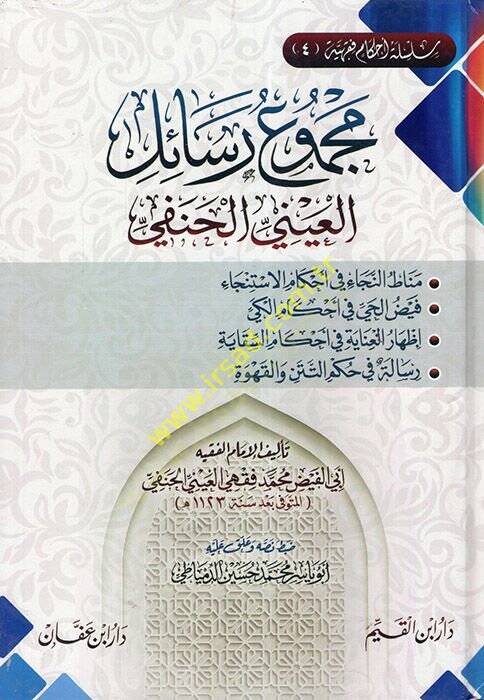 سلسلة أحكام فقهية (٤)
مجموع رسائل
العيني الحنفي
مناط النجاء في أحكام الاستنجاء
فيض الحي في أحكام الكي
إظهار العناية في أحكام السقاية
رسالة في حكم التتن والقهوة
تأليف الإمام الفقيه
أبي الفيض محمد فقهي العيني الحنفي
(المتوفى بعد سنة ١١٢٣ هـ)
ضبط نصه وعلق عليه
أبو ياسر محمد حسين الدمياطي
دار ابن القيم
دار ابن عفان
www.irsad.com.tr